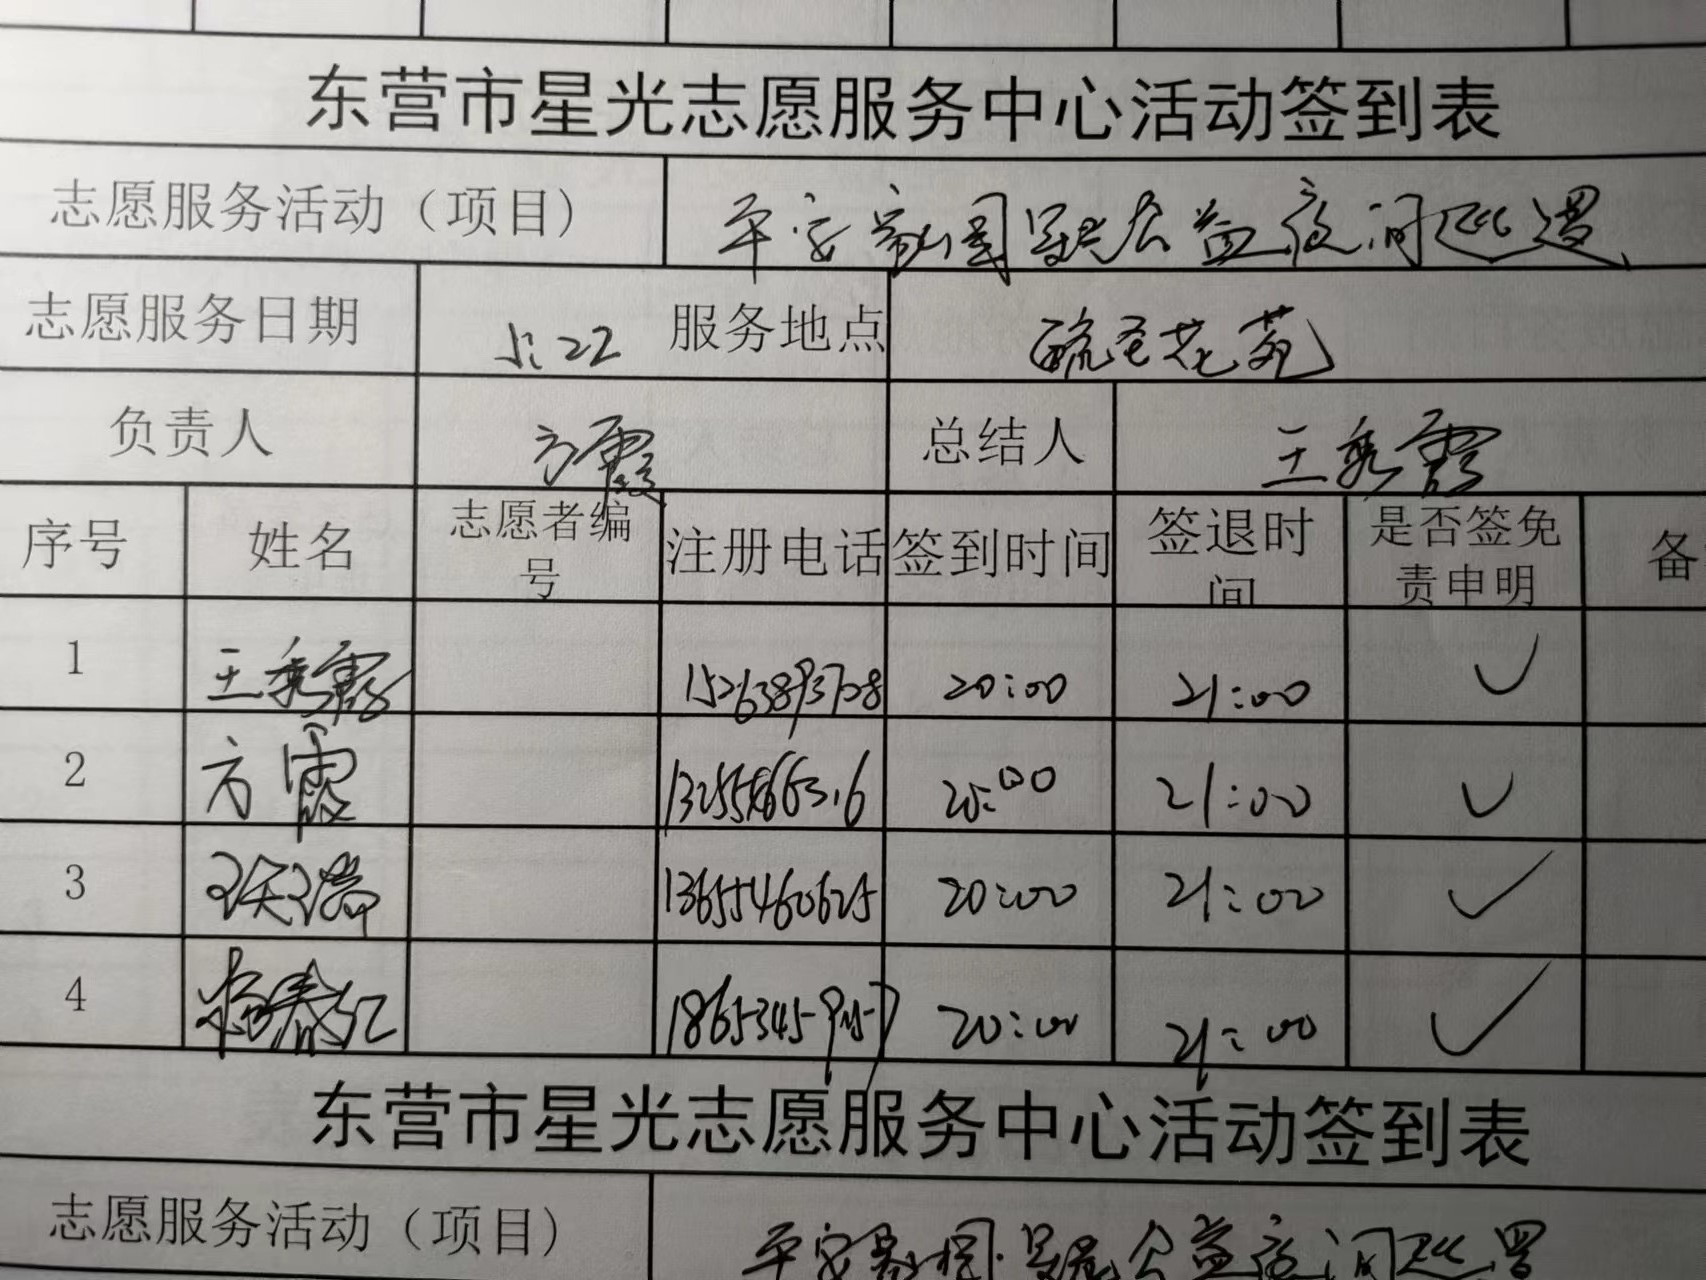 东营市星光志愿服务中心活动签到表
志愿服务活动（项目） 平安家园 公益夜间巡逻
志愿服务日期 5:22 服务地点 花苑
负责人 方霞 总结人 王秀霞
序号 姓名 志愿者编号 注册电话 签到时间 签退时间 是否签免责申明 备
1 王秀霞 20:00 21:00 ✓
2 方霞 20:00 21:00 ✓
3 13655460625 20:00 21:00 ✓
4 杨春红 20:00 21:00 ✓
东营市星光志愿服务中心活动签到表
志愿服务活动（项目） 平安家园 公益夜间巡逻